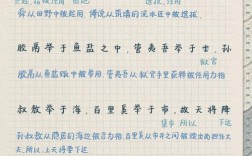 舜从田野中被起用，傅说从筑墙的泥水匠中被选拔，
胶鬲举于鱼盐之中，管夷吾举于士，孙
狱官
胶鬲从鱼盐贩中被举用，管夷吾从狱官手里获释被任用为相
叔敖举于海，百里奚举于市，故天将降
集市 所以 下达
孙叔敖从隐居的海边被登用为相，百里奚从市井之间被提出而担任
大夫，所以上天将要下达